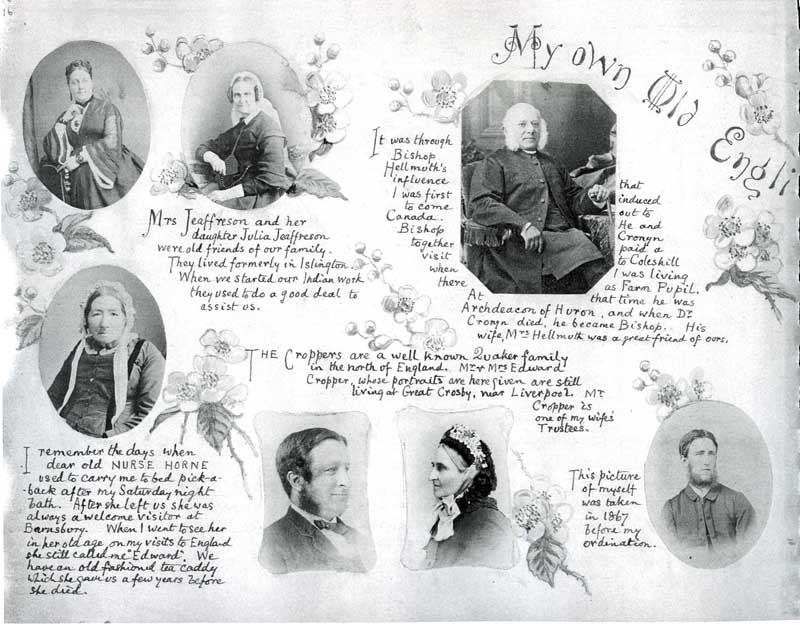 16
My own Old Engli
Mrs Jeaffreson and her
daughter Julia Jeaffreson
were old friends of our family.
They lived formerly in Islington.
When we started our Indian work
they used to do a good deal to
assist us.
It was through
Bishop
Hellmuth's
influence that
I was first induced
to come out to
Canada. He and
Bishop Cronyn
together paid a
visit to Coleshill
when I was living
there as Farm Pupil.
At that time he was
Archdeacon of Huron, and when Dr
Cronyn died, he became Bishop. His
wife, Mrs Hellmuth was a great friend of ours.
The Croppers are a well known Quaker family
in the north of England. Mr & Mrs Edward
Cropper, whose portraits are here given are still
living at Great Crosby, near Liverpool. Mr
Cropper is
one of my wife's
Trustees.
I remember the days when
dear old NURSE HORNE
used to carry me to bed pick-a-
-back after my Saturday night
bath. After she left us she was
always a welcome visitor at
Barnsbury. When I went to see her
in her old age, on my visits to England
she still called me "Edward". We
have an old fashioned tea caddy
which she gave us a few years before
she died.
This picture
of myself
was taken
in 1867
before my
ordination.